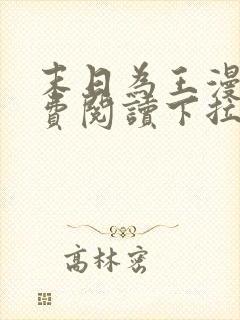 末日為王漫
費閱讀下拉
高林密